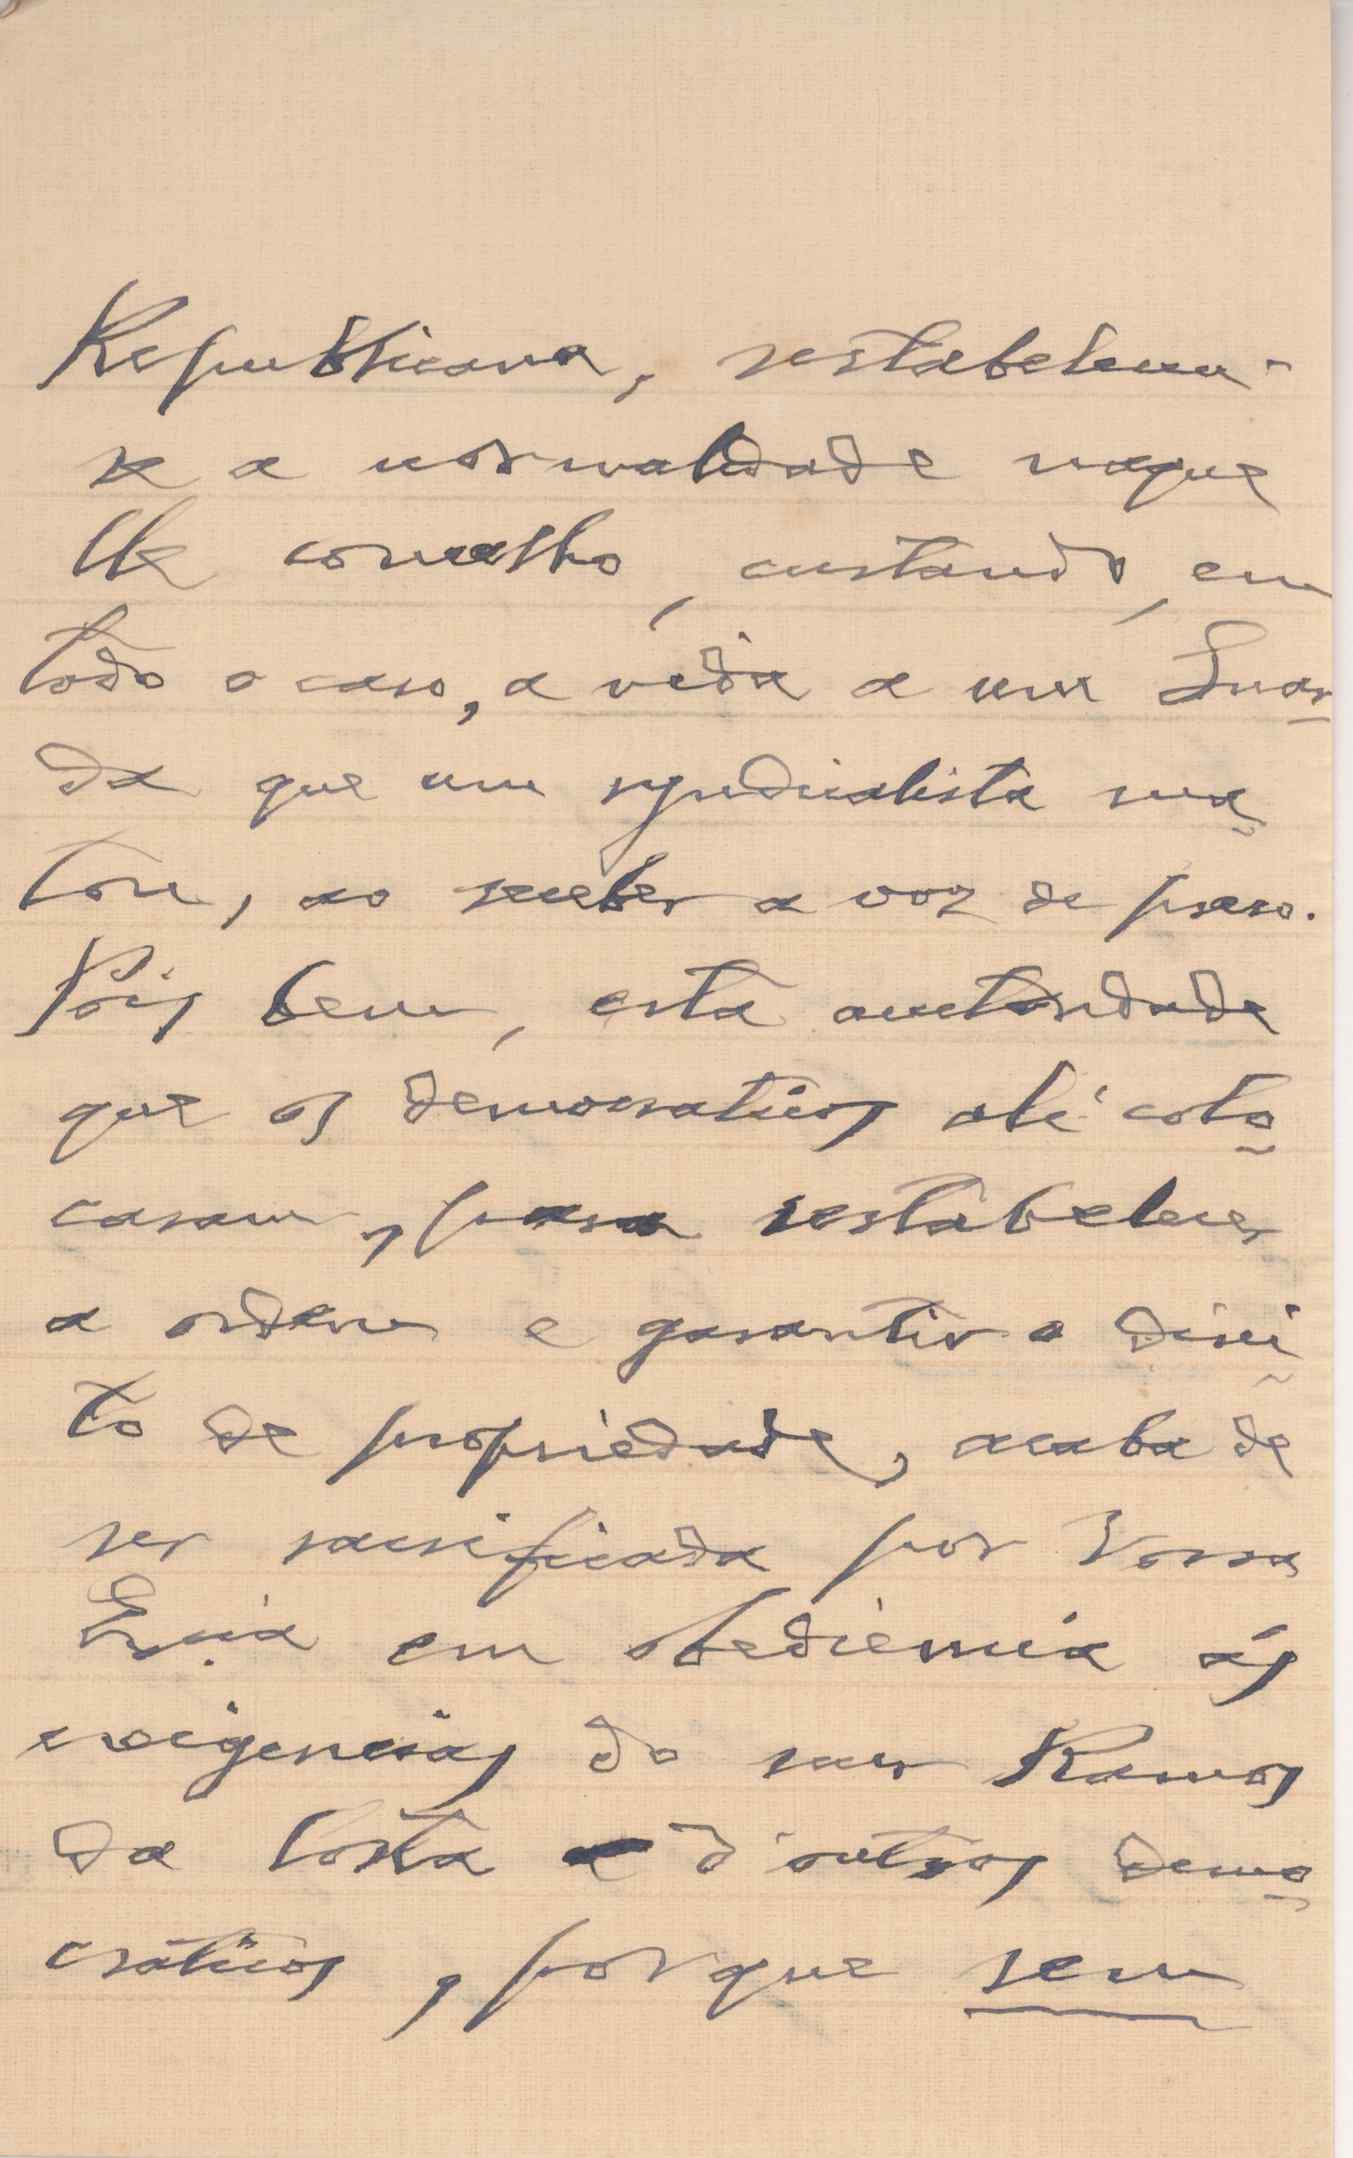 Republicana, restabeleceu-
se a normalidade naque
lle concelho, custando, em
todo o caso, a vida a um Guar-
da que um syndicalista ma-
tou, ao receber a voz de preso.
Pois bem, esta auctoridade
que os democraticos ali colo-
caram, para restabelecer
a ordem e garantir o direi-
to de propriedade, acaba de
ser sacrificada por Vossa
Ex.cia em obediencia ás
exigencias do snr Ramos
da Costa e d'outros demo-
cráticos, porque sem